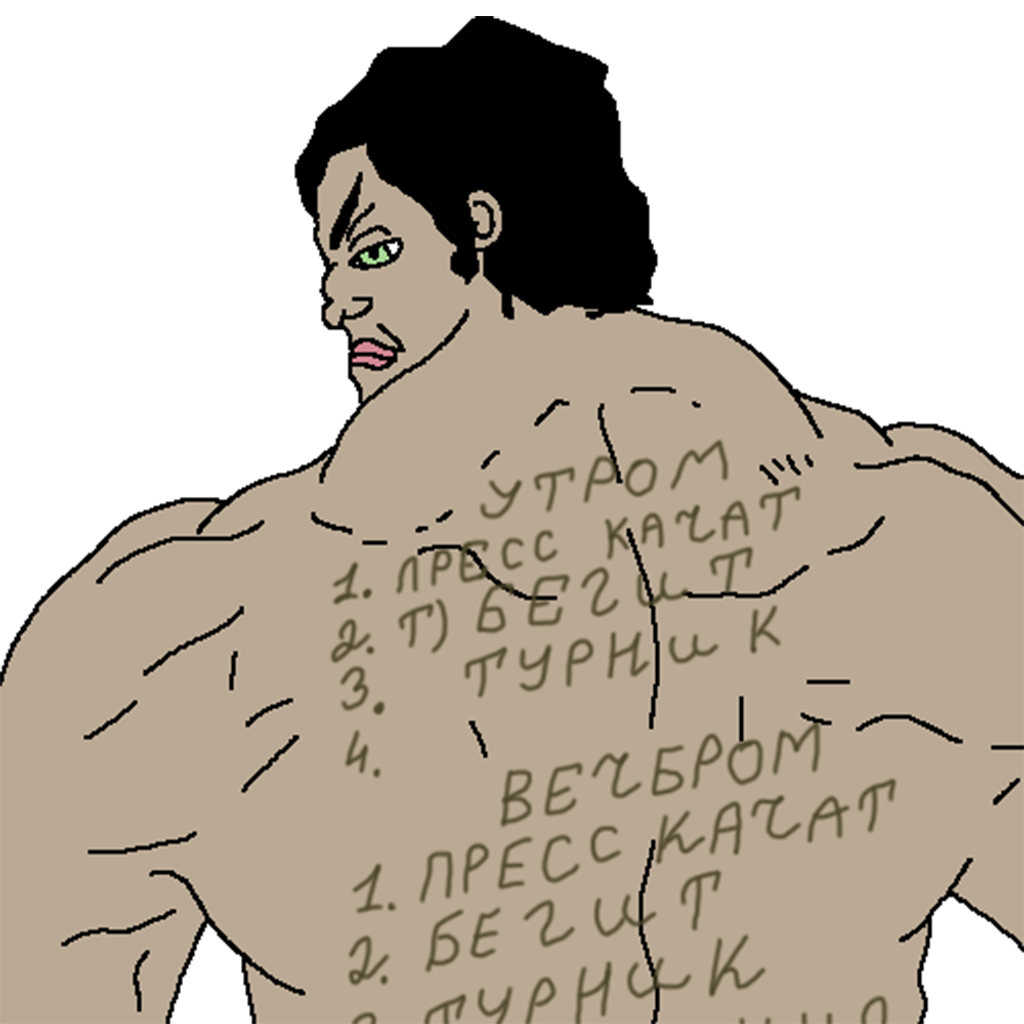 УТРОМ
1. ПРЕСС КАЧАТ
2. Т) БЕГИТ
3. ТУРНИК
4.
ВЕЧБРОМ
1. ПРЕСС КАЧАТ
2. БЕГИТ
ТУРНИК